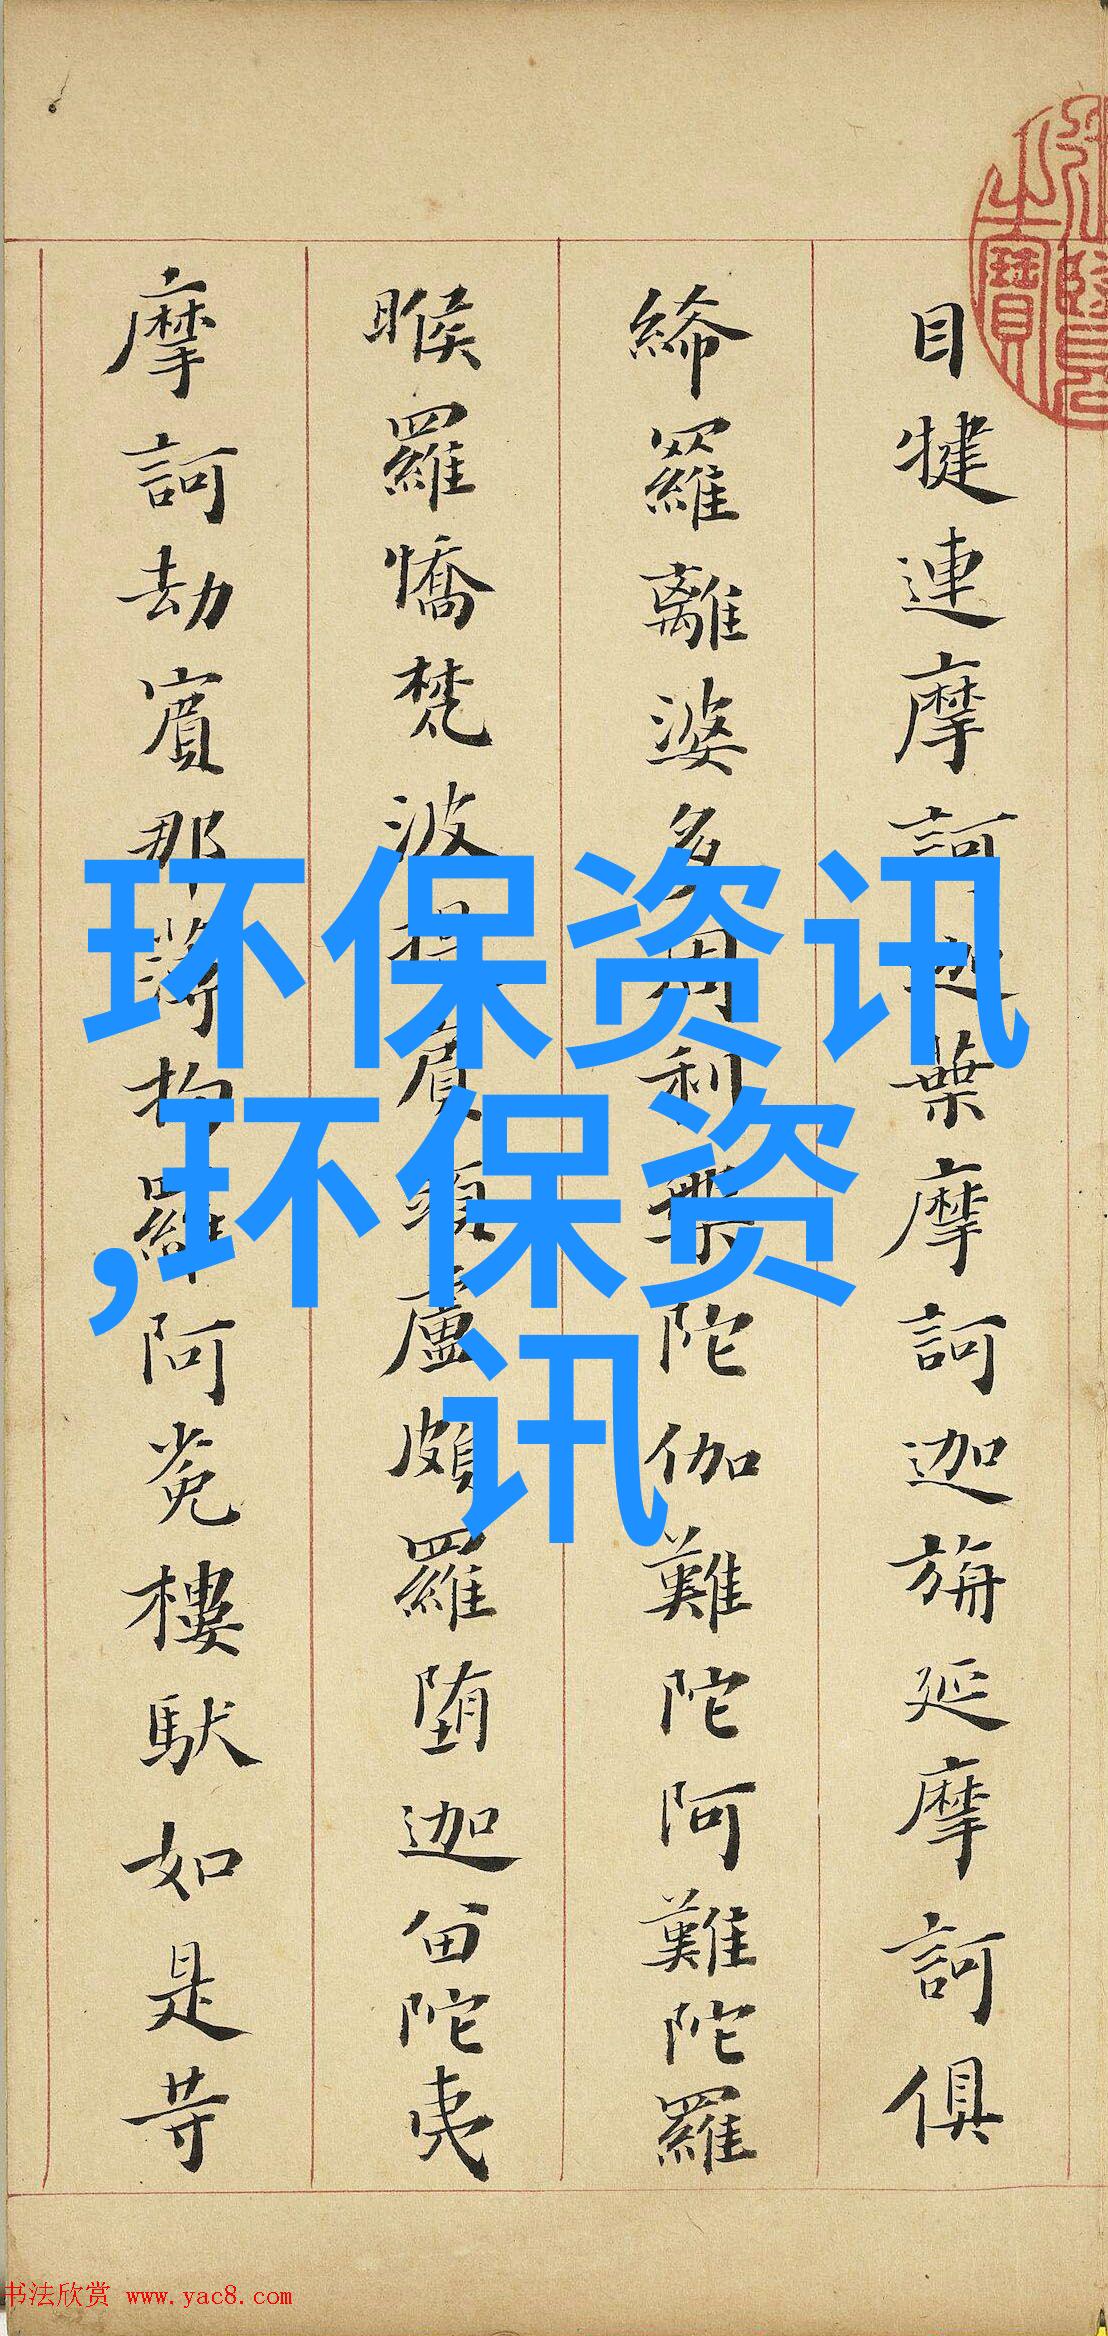 目犍連摩訶迦葉摩訶迦旃延摩訶俱
絺羅離婆多周利槃陀伽難陀阿難陀羅
睺羅憍梵波提賓頭盧頗羅墮迦留陀夷
摩訶劫賓那薄拘羅阿㝹樓馱如是等
之寶
环保资讯
,环保资
讯
书法欣赏 www.yac8.com